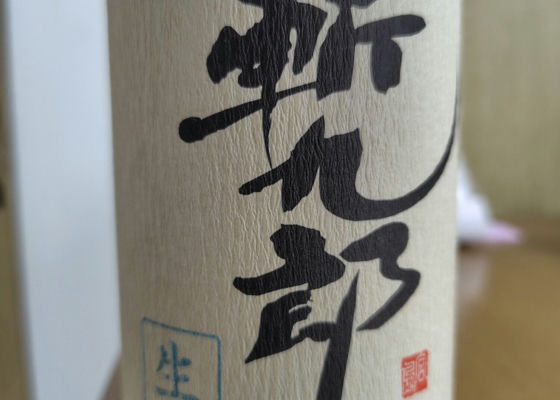 斬九郎
生